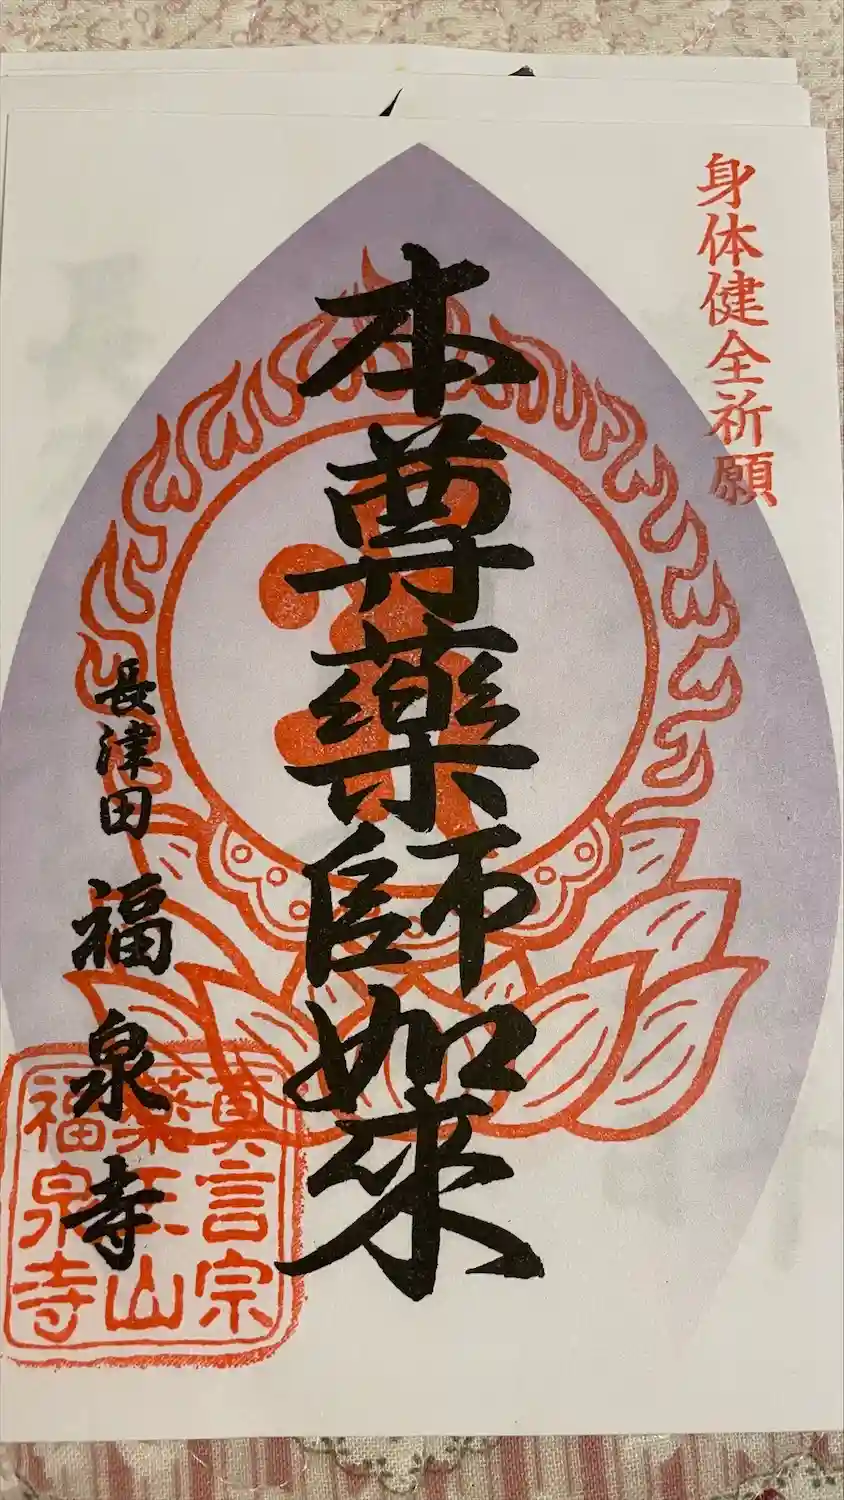 身体健全祈願
本尊薬師如来
長津田 福泉寺
真言宗
薬王山
福泉寺